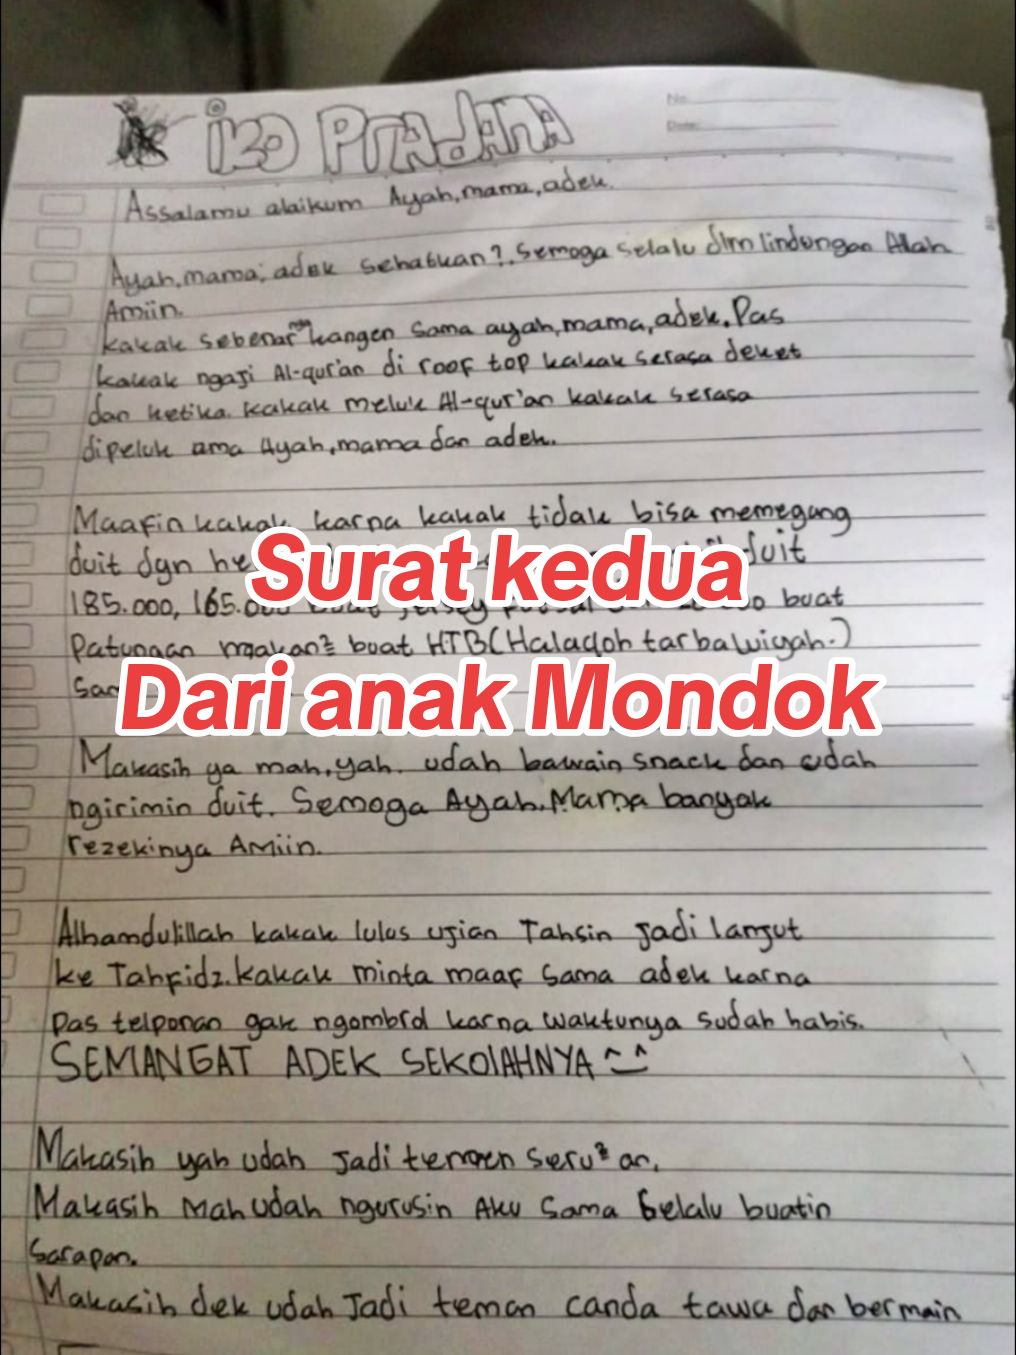 iko Pradana
No.
Date:
Assalamu alaikum Ayah,mama,adek.
Ayah,mama,adek sehatkan?.Semoga selalu dlm lindungan Allah
Amiin.
kakak sebenarnya kangen sama ayah,mama,adek.Pas
kakak ngaji Al-qur'an di roof top kakak serasa deket
dan ketika kakak meluk Al-qur'an kakak serasa
dipeluk ama Ayah,mama dan adek.
Maafin kakak karna kakak tidak bisa memegang
duit dgn duit
Surat kedua
185.000, 165.000 buat
Patungan makan² buat HTB(Halaqoh tarbawiyah.)
Dari anak Mondok
Makasih ya mah,yah. udah bawain snack dan udah
ngirimin duit. Semoga Ayah,Mama banyak
rezekinya Amiin.
Alhamdulillah kakak lulus ujian Tahsin jadi lanjut
ke Tahfidz.kakak minta maaf sama adek karna
pas telponan gak ngombrol karna waktunya sudah habis.
SEMANGAT ADEK SEKOlAHNYA ^_^
Makasih yah udah jadi temen seru² an,
Makasih mah udah ngurusin Aku sama selalu buatin
sarapan.
Makasih dek udah Jadi teman canda tawa dan bermain